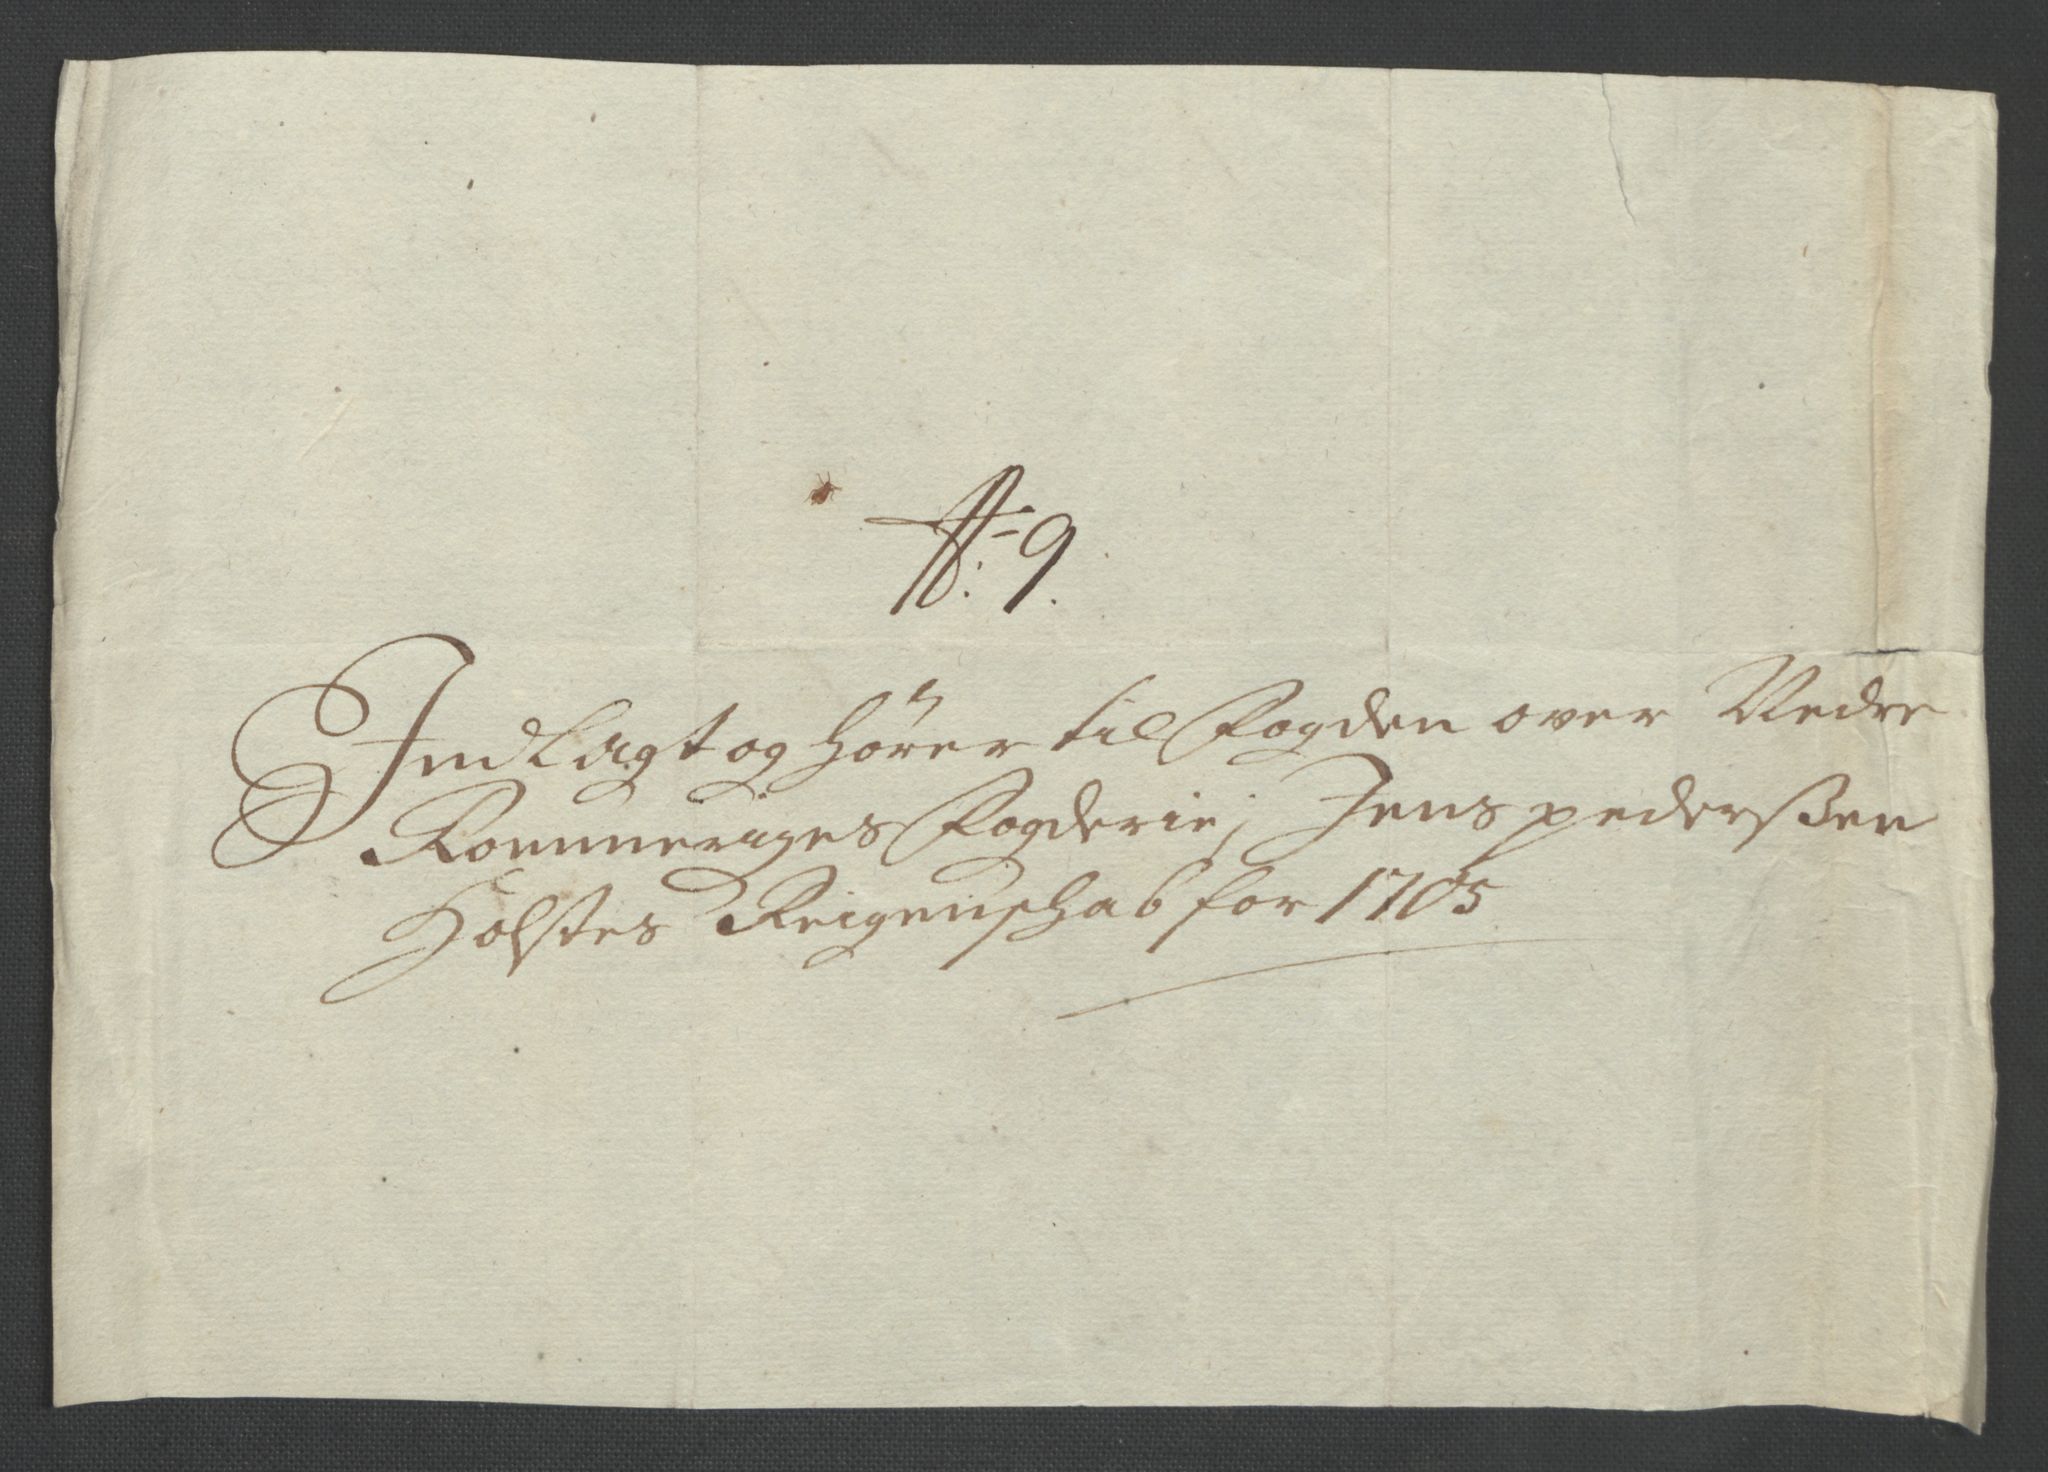 No: 9.
Indlagt og hörer til Fogden over Nedre
Rommeriges Fogderie, Jens pederßen
Holstes Reigenschab for 1705